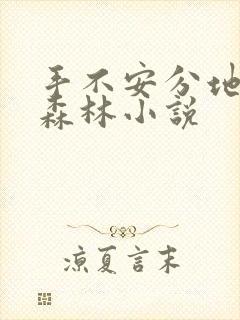 手不安分地
森林小說
凉夏言末